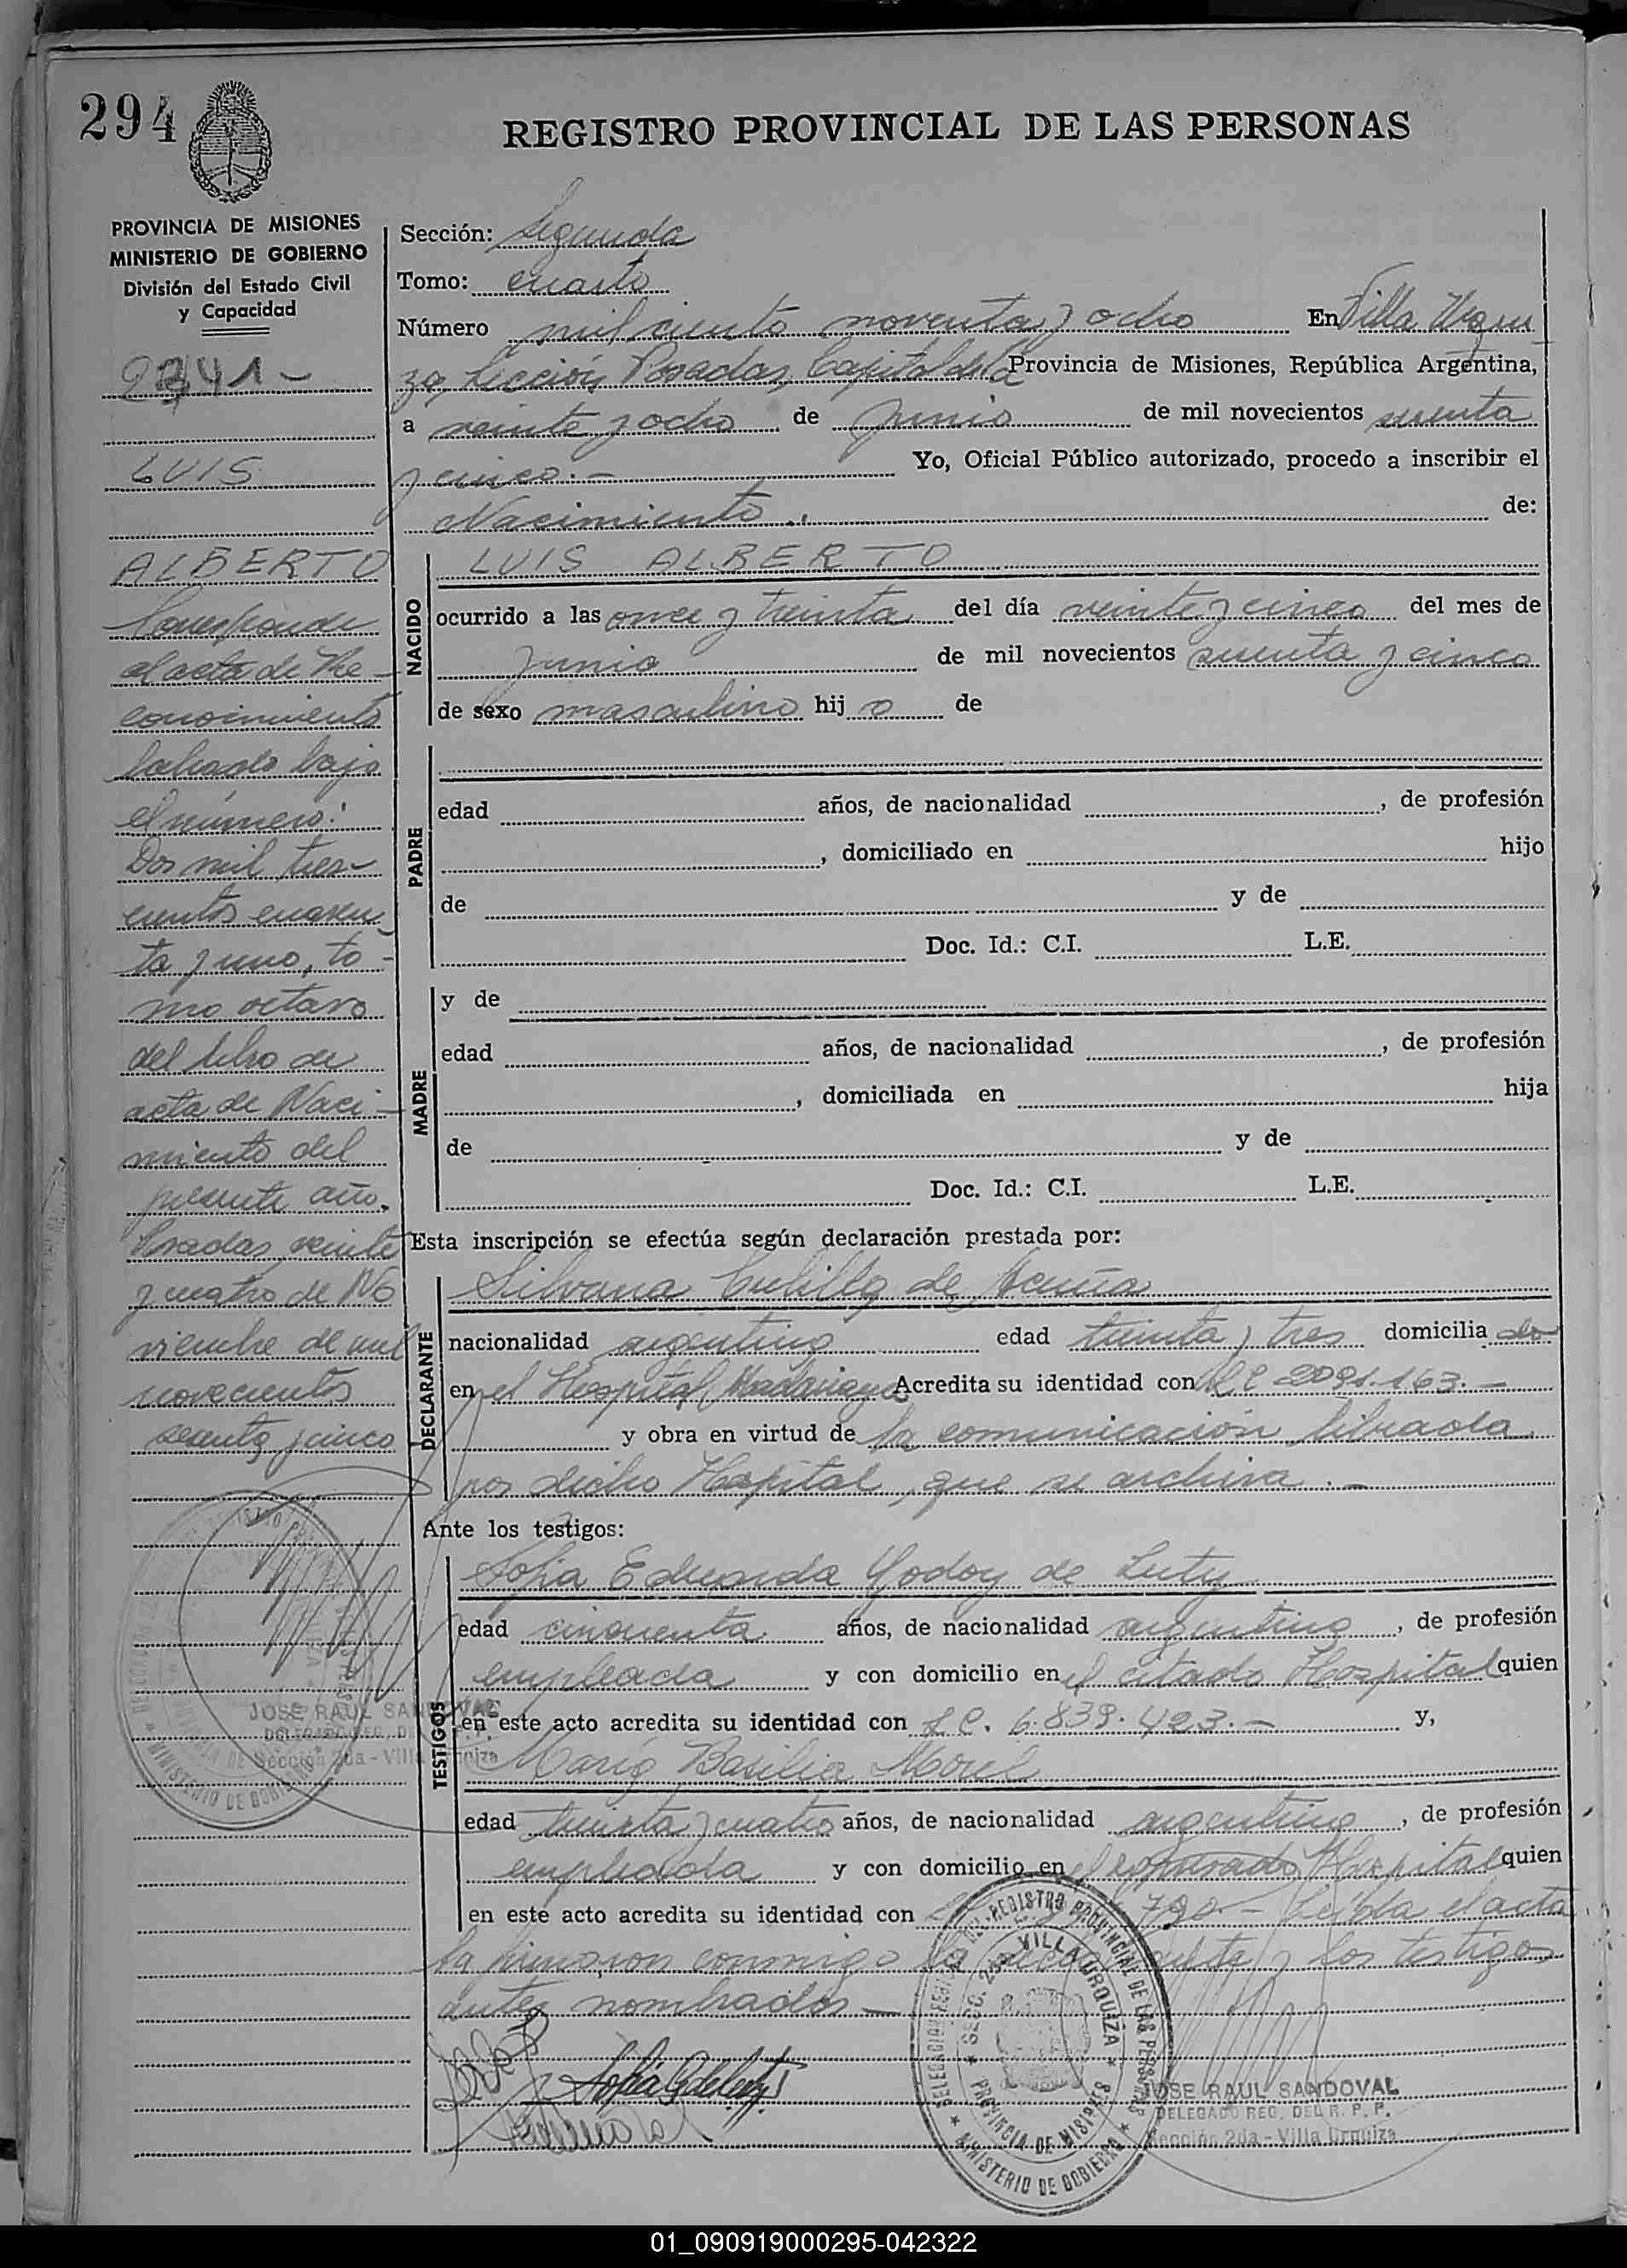 294
REGISTRO PROVINCIAL DE LAS PERSONAS
PROVINCIA DE MISIONES
MINISTERIO DE GOBIERNO
División del Estado Civil
y Capacidad
2341 -
LUIS
ALBERTO
Corresponde
al acta de Re-
conocimiento
labrado bajo
el número:
Dos mil tres-
cientos cuaren
ta y uno, to-
mo octavo
del libro de
acta de Naci-
miento del
presente año.
Posadas, veinte
y cuatro de No
viembre de mil
novecientos
sesenta y cinco
Sección: Segunda
Tomo: cuarto
Número mil ciento noventa y ocho En Villa Urqui
za, Sección Posadas, Capital de la Provincia de Misiones, República Argentina,
a veinte y ocho de junio de mil novecientos sesenta
y cinco.- Yo, Oficial Público autorizado, procedo a inscribir el
Nacimiento de:
NACIDO
LUIS ALBERTO
ocurrido a las once y treinta del día veinte y cinco del mes de
junio de mil novecientos sesenta y cinco
de sexo masculino hij o de
PADRE
edad años, de nacionalidad , de profesión
, domiciliado en hijo
de y de
Doc. Id.: C.I. L.E.
MADRE
y de
edad años, de nacionalidad , de profesión
, domiciliada en hija
de y de
Doc. Id.: C.I. L.E.
Esta inscripción se efectúa según declaración prestada por:
DECLARANTE
Silvana Cubilla de Acuña
nacionalidad argentina edad treinta y tres domicilia da
en el Hospital Madariaga Acredita su identidad con L C 2091.163.-
y obra en virtud de la comunicación librada
por dicho Hospital, que se archiva.-
Ante los testigos:
TESTIGOS
Sofia Eduarda Godoy de Luty
edad cincuenta años, de nacionalidad argentina , de profesión
empleada y con domicilio en el citado Hospital quien
en este acto acredita su identidad con L C. 6.839.423.- y,
María Basilia Morel
edad treinta y cuatro años, de nacionalidad argentina , de profesión
empleada y con domicilio en el Hospital quien
en este acto acredita su identidad con 790.- Leída el acta
la firmaron conmigo la y los testigos
antes nombrados -
JOSE RAUL SANDOVAL
DELEGADO REG. DEL R. P. P.
Sección 2da - Villa Urquiza
DELEGACION REG. DEL REGISTRO PROVINCIAL DE LAS PERSONAS
SECC. 2da VILLA URQUIZA
PROVINCIA DE MISIONES
MINISTERIO DE GOBIERNO
JOSE RAUL SANDOVAL
DELEGADO REG. DEL R. P. P.
Sección 2da - Villa Urquiza
01_090919000295-042322